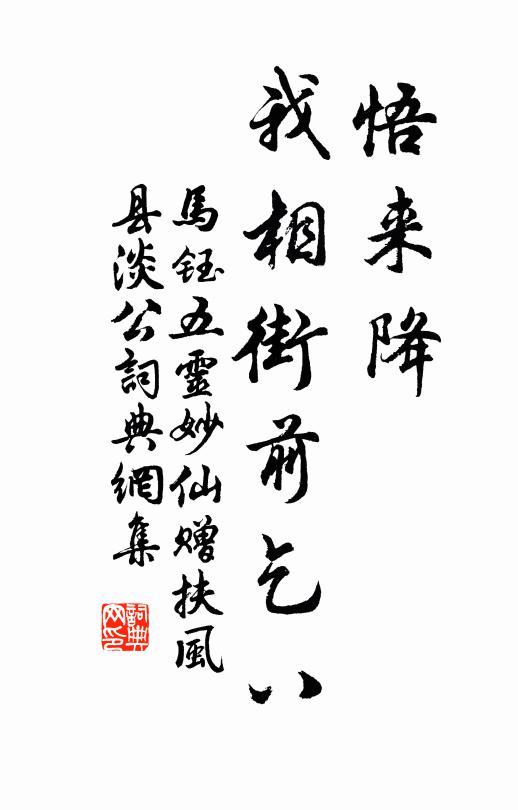 悟来降
我相街前乞八
馬鈺五靈妙仙赠扶風
县淡公詞典網集
詞典网印